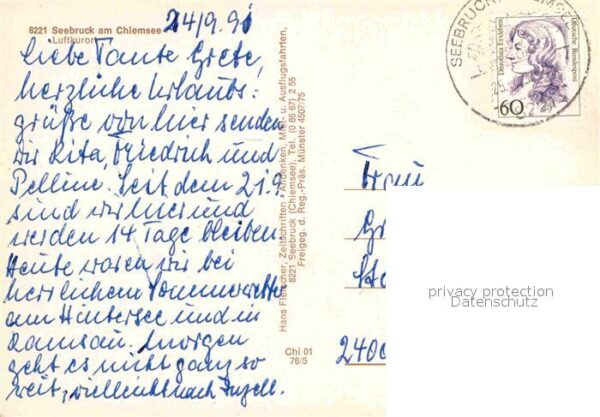 8221 Seebruck am Chiemsee
Luftkurort
24/9. 91
Liebe Tante Grete,
herzliche Urlaubs-
grüße von hier senden
wir Rita, Friedrich und
Pelline. Seit dem 21.9.
sind wir hier und
werden 14 Tage bleiben.
Heute waren wir bei
herrlichem Sommerwetter
am Hintersee und in
Ramsau. Morgen
geht es nicht ganz so
weit, vielleicht nach Inzell.
Zeitschriften - Andenken, Miet- u. Ausflugsfahrten,
8221 Seebruck (Chiemsee), Tel. (0 86 67) 2 55
Freigeg. d. Reg.-Präs. Münster 4507/75
Chi 01
76/5
SEEBRUCK
Dorothea Erxleben
Deutsche Bundespost
60
Frau
2400
privacy protection
Datenschutz